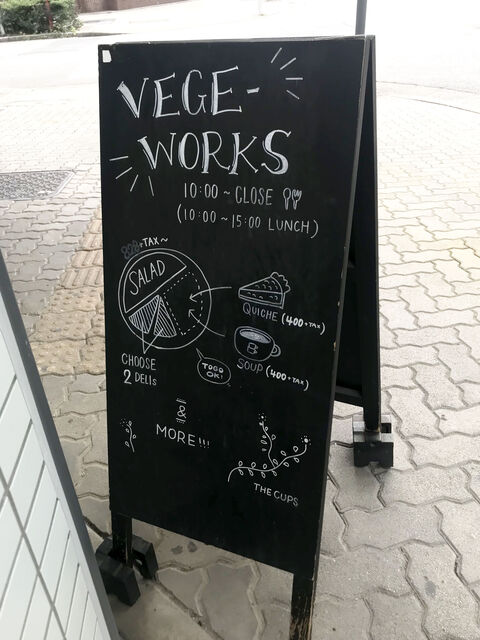 VEGE-
WORKS
10:00 ~ CLOSE
(10:00 ~ 15:00 LUNCH)
+TAX~
SALAD
QUICHE (400+TAX)
SOUP (400+TAX)
CHOOSE
2 DELIS
TOGO
OK!
&
MORE!!!
THE CUPS